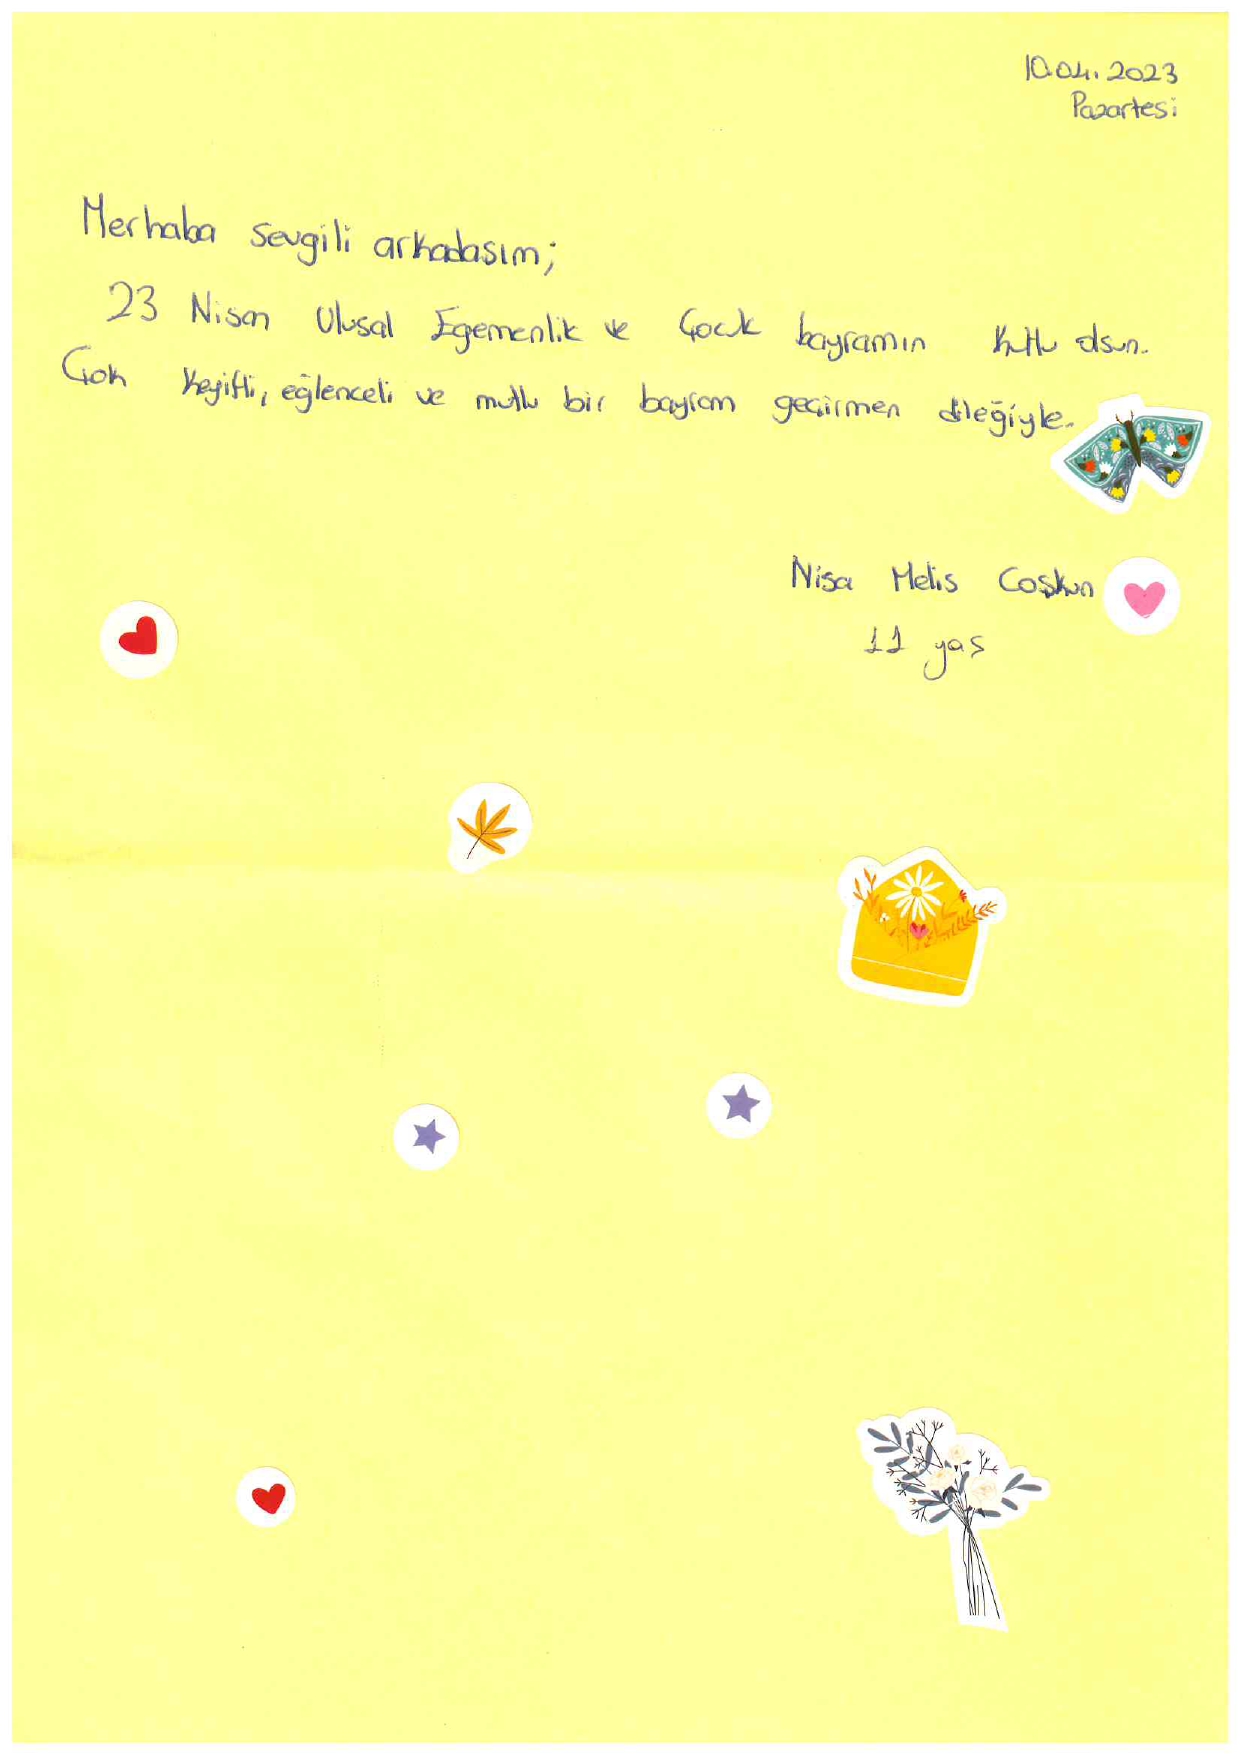 10.04.2023
Pazartesi
Merhaba sevgili arkadasım;
23 Nisan Ulusal Egemenlik ve Çocuk bayramın kutlu olsun.
Çok keyifli, eğlenceli ve mutlu bir bayram geçirmen dileğiyle.
Nisa Melis Coşkun
11 yaş